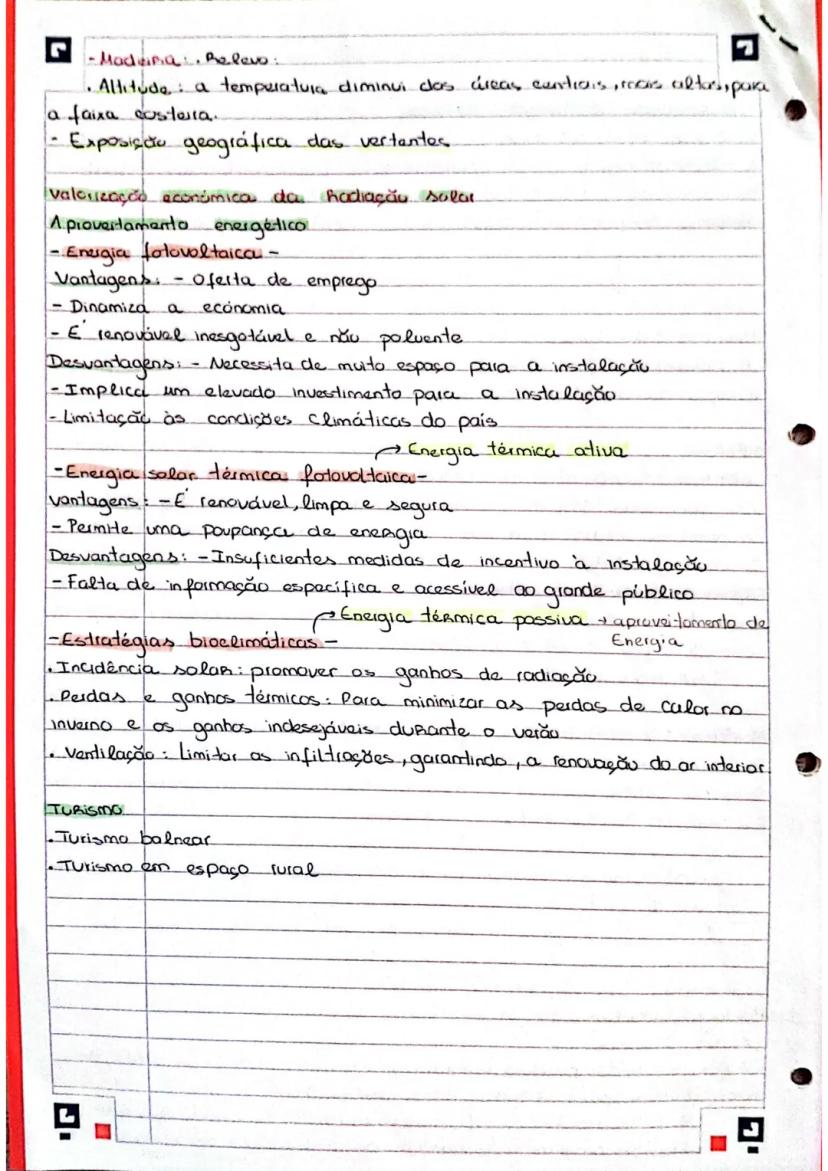 - Madeira: . Relevo:
. Altitude: a temperatura diminui das áreas centrais, mais altas, para
a faixa costeira.
- Exposição geográfica das vertentes
Valorização económica da Radiação solar
Aproveitamento energético
- Energia fotovoltaica -
Vantagens: - Oferta de emprego
- Dinamiza a económia
- É renovável inesgotável e não poluente
Desvantagens: - Necessita de muito espaço para a instalação
- Implica um elevado investimento para a instalação
- Limitação às condições climáticas do país
→ Energia térmica ativa
- Energia solar térmica fotovoltaica -
Vantagens: - É renovável, limpa e segura
- Permite uma poupança de energia
Desvantagens: - Insuficientes medidas de incentivo à instalação
- Falta de informação específica e acessível ao grande público
→ Energia térmica passiva → aproveitamento de
Energia
- Estratégias bioclimáticas -
. Incidência solar: promover os ganhos de radiação
. Perdas e ganhos térmicos: Para minimizar as perdas de calor no
inverno e os ganhos indesejáveis durante o verão
. Ventilação: Limitar as infiltrações, garantindo, a renovação do ar interior
Turismo
. Turismo balnear
. Turismo em espaço rural